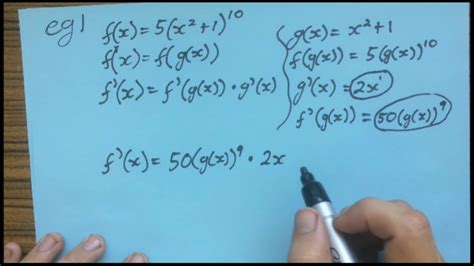 eg 1
f(x) = 5(x²+1)¹⁰
f(x) = f(g(x))
f'(x) = f'(g(x)) · g'(x)
g(x) = x²+1
f(g(x)) = 5(g(x))¹⁰
g'(x) = 2x¹
f'(g(x)) = 50(g(x))⁹
f'(x) = 50(g(x))⁹ · 2x